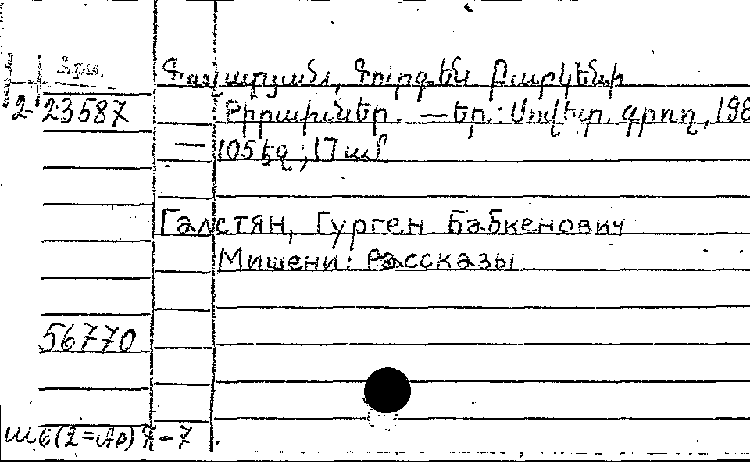 Գալստյան, Գուրգեն Բաբկենի
23587 Թիրախներ. — Եր.: Սովետ. գրող, 198
— 105 էջ; 17 սմ
Галстян, Гурген Бабкенович
Мишени: Рассказы
56770
7-7